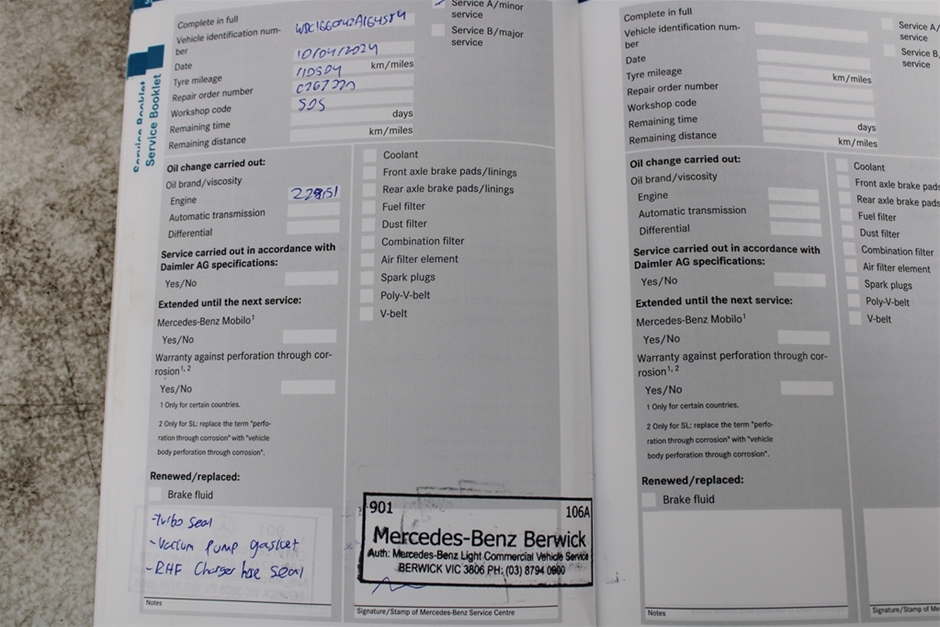 Service Booklet
Service Booklet
Complete in full
Vehicle identification num-
ber
Date 10/04/2024
Tyre mileage km/miles
Repair order number
Workshop code SDS
Remaining time days
Remaining distance km/miles
Service A/minor
service
Service B/major
service
Oil change carried out:
Oil brand/viscosity
Engine 229.51
Automatic transmission
Differential
Service carried out in accordance with
Daimler AG specifications:
Yes/No
Extended until the next service:
Mercedes-Benz Mobilo1
Yes/No
Warranty against perforation through cor-
rosion1, 2
Yes/No
1 Only for certain countries.
2 Only for SL: replace the term "perfo-
ration through corrosion" with "vehicle
body perforation through corrosion".
Renewed/replaced:
Brake fluid
-Turbo seal
-Vacum pump gasket
-RHF Charger hose seal
Notes
Coolant
Front axle brake pads/linings
Rear axle brake pads/linings
Fuel filter
Dust filter
Combination filter
Air filter element
Spark plugs
Poly-V-belt
V-belt
901 106A
Mercedes-Benz Berwick
Auth: Mercedes-Benz Light Commercial Vehicle Service
BERWICK VIC 3806 PH: (03) 8794 0900
Signature/Stamp of Mercedes-Benz Service Centre
Complete in full
Vehicle identification num-
ber
Date
Tyre mileage km/miles
Repair order number
Workshop code
Remaining time days
Remaining distance km/miles
Service A/
service
Service B
service
Oil change carried out:
Oil brand/viscosity
Engine
Automatic transmission
Differential
Service carried out in accordance with
Daimler AG specifications:
Yes/No
Extended until the next service:
Mercedes-Benz Mobilo1
Yes/No
Warranty against perforation through cor-
rosion1, 2
Yes/No
1 Only for certain countries.
2 Only for SL: replace the term "perfo-
ration through corrosion" with "vehicle
body perforation through corrosion".
Renewed/replaced:
Brake fluid
Notes
Coolant
Front axle brake pads
Rear axle brake pads
Fuel filter
Dust filter
Combination filter
Air filter element
Spark plugs
Poly-V-belt
V-belt
Signature/Stamp of Me